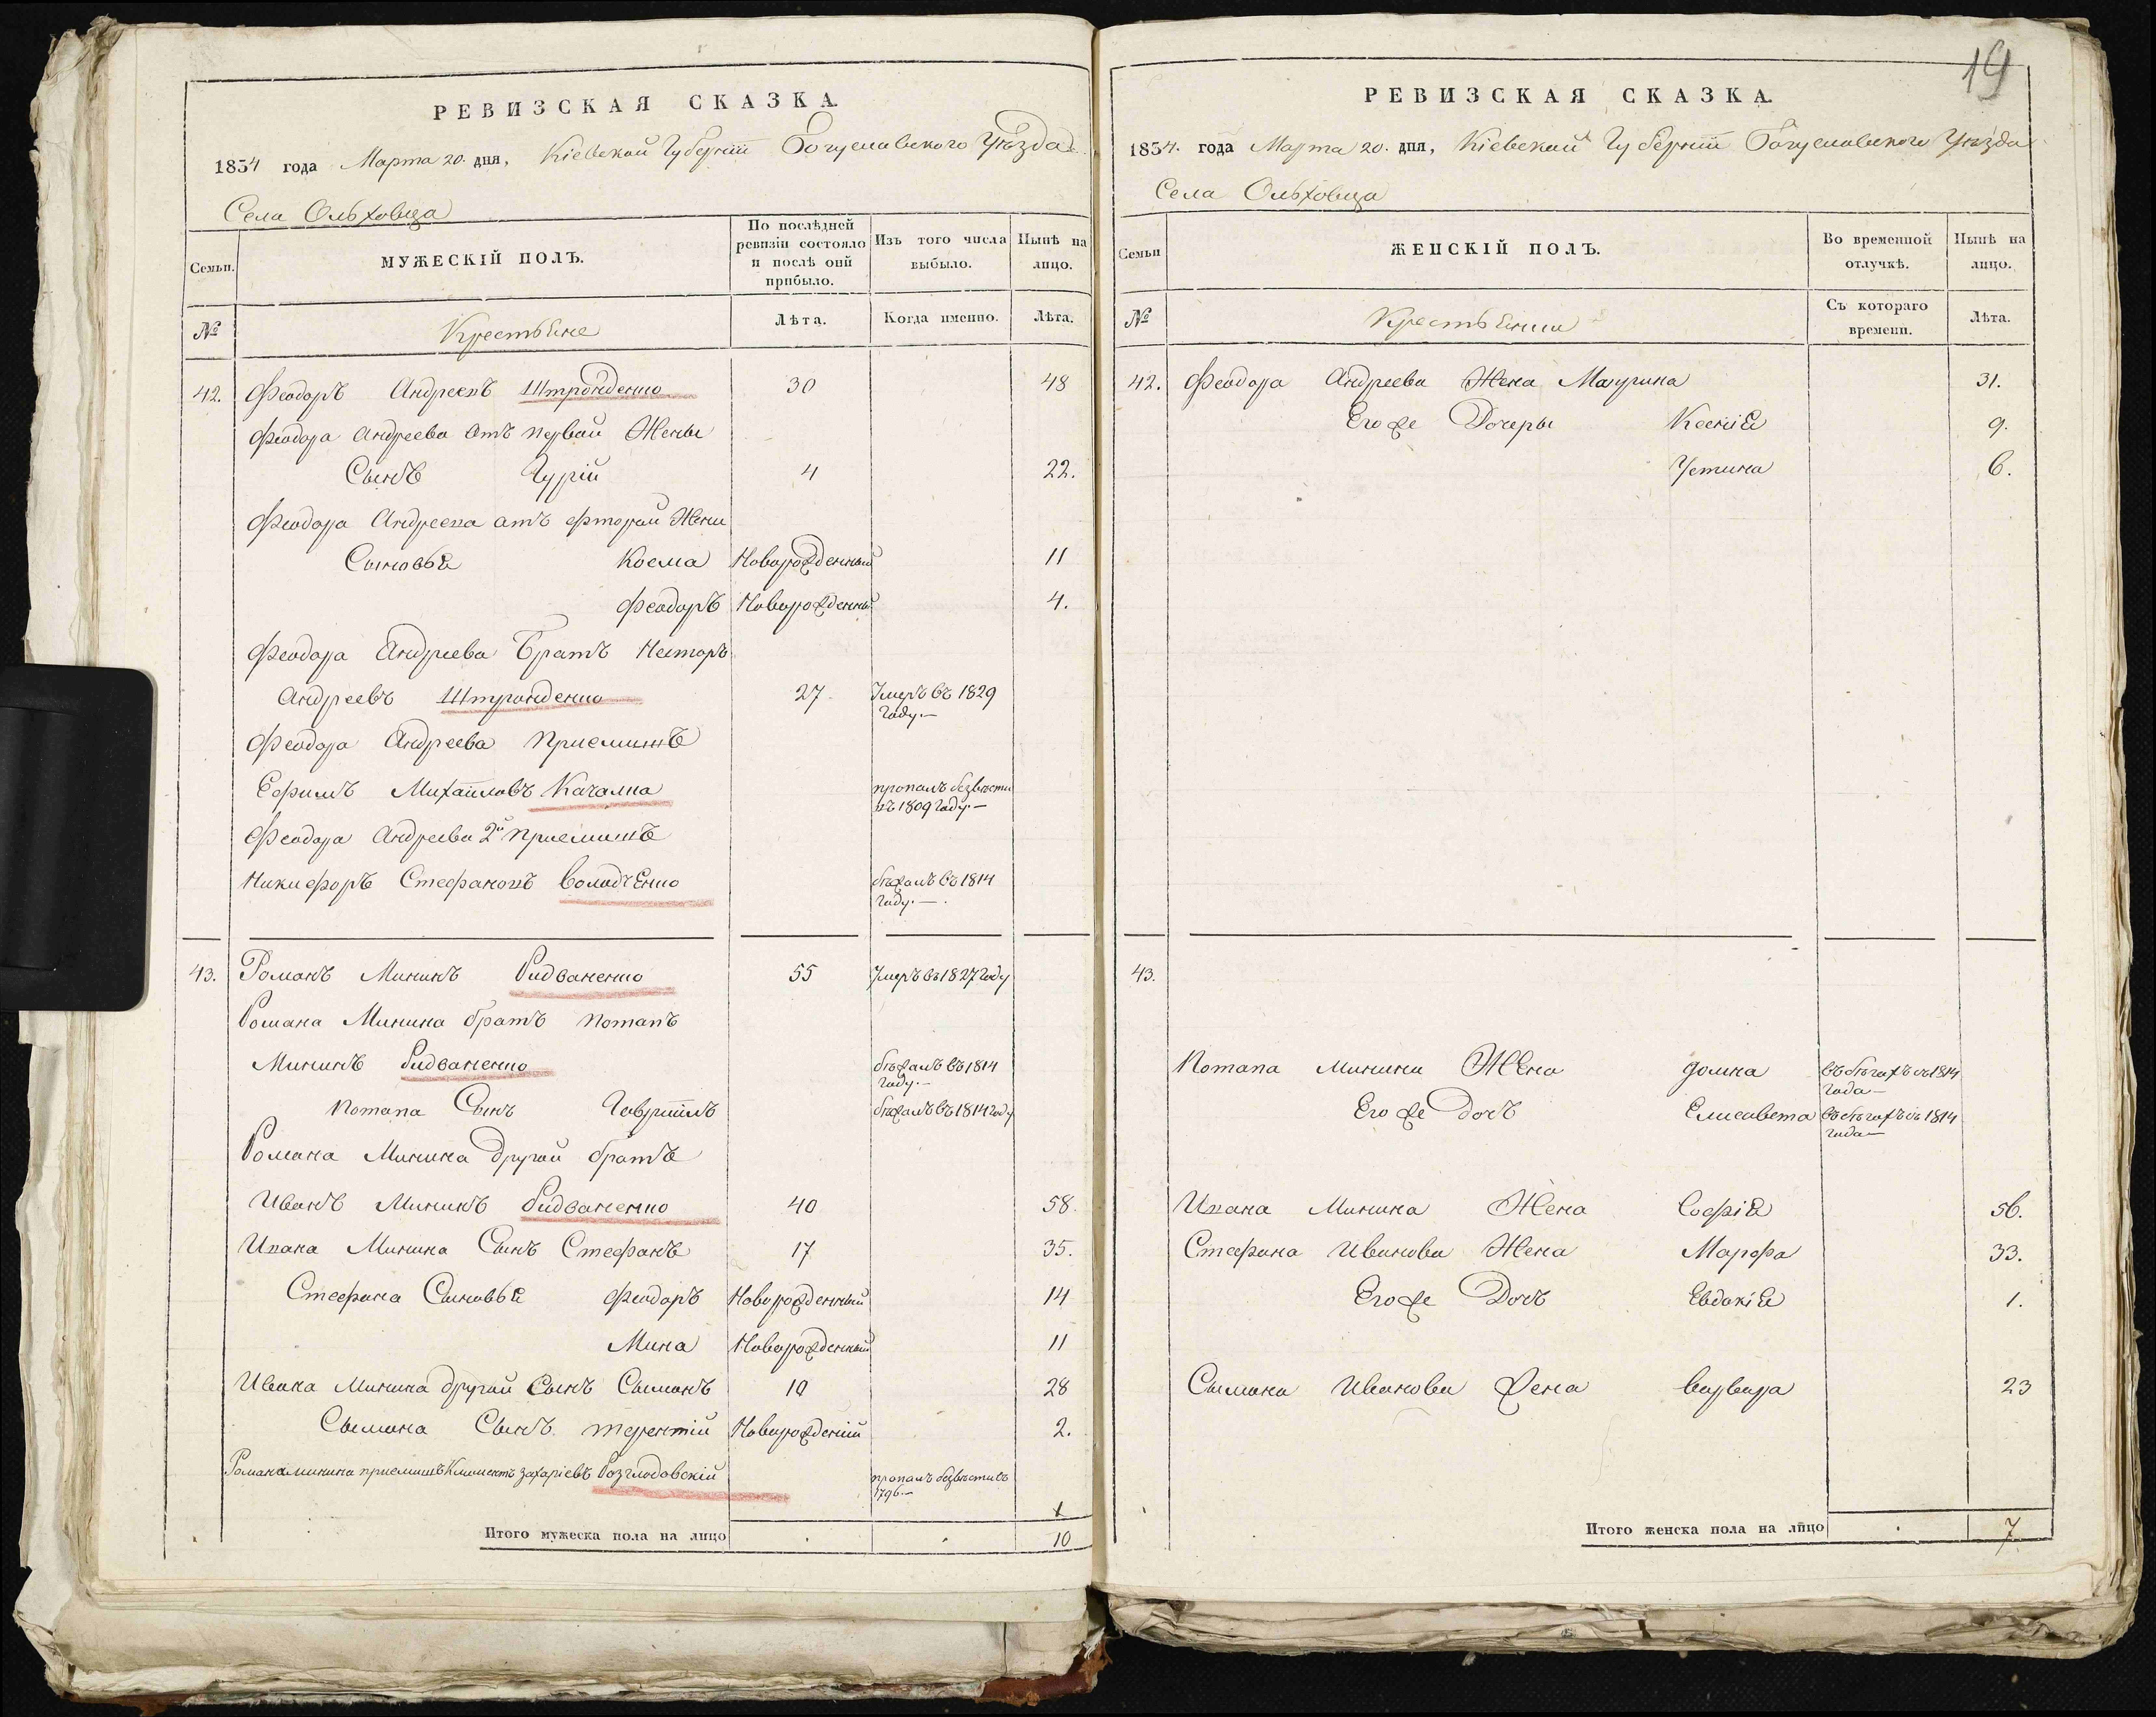 РЕВИЗСКАЯ СКАЗКА.
1834 года Марта 20. дня, Кіевской Губерніи Богуславского Уѣзда
Села Ольховца
Семьи. МУЖЕСКІЙ ПОЛЪ. По послѣдней ревизіи состояло и послѣ оной прибыло. Изъ того числа выбыло. Нынѣ на лицо.
№ Крестьяне Лѣта. Когда именно. Лѣта.
42. Феодоръ Андреевъ 30 48
Феодора Андреева отъ первой Жены
Сынъ Гурій 4 22.
Феодора Андреева отъ фторой Жени
Сыновья Косма Новорожденный 11
Феодоръ Новорожденный 4.
Феодора Андреева Братъ Несторъ
Андреевъ 27 Умеръ въ 1829
Году.—
Феодора Андреева приемишъ
Ефимъ Михайловъ Качалка пропалъ безвѣсти
въ 1809 Году.—
Феодора Андреева 2й приемишъ
Никифоръ Стефановъ Володченко бѣжалъ въ 1814
Году.—.
43. Романъ Мининъ Ридваненко 55 Умеръ въ 1827 Году
Романа Минина братъ Потапъ
Мининъ Ридваненко бѣжалъ въ 1814
Году.—
Потапа Сынъ Гавріилъ бѣжалъ въ 1814 Году
Романа Минина Другой братъ
Иванъ Мининъ Ридваненко 40 58.
Ивана Минина Сынъ Стефанъ 17 35.
Стефана Сыновья Феодоръ Новорожденный 14
Мина Новорожденный 11
Ивана Минина другой Сынъ Сымонъ 10 28
Сымона Сынъ Терентій Новорожденій 2.
Романа Минина приемишъ Климентъ Захаріевъ Розглодовскій пропалъ безвѣсти въ
1796.—
Итого мужеска пола на лицо . . 10
19
РЕВИЗСКАЯ СКАЗКА.
1834. года Марта 20. дня, Кіевской Губерніи Богуславского Уѣзда
Села Ольховца
Семьи ЖЕНСКІЙ ПОЛЪ. Во временной отлучкѣ. Нынѣ на лицо.
№ Крестьянки Съ котораго времени. Лѣта.
42. Феодора Андреева Жена Мотрина 31.
Его же Дочеры Ксенія 9.
Устина 6.
43.
Потапа Минина Жена Домна въ бѣгахъ съ 1814
Года—
Его же Дочъ Елисавета въ бѣгахъ съ 1814
Года—
Ивана Минина Жена Софія 56.
Стефана Иванова Жена Марфа 33.
Его же Дочъ Евдокія 1.
Сымона Иванова жена Варвара 23
Итого женска пола на лицо . 7